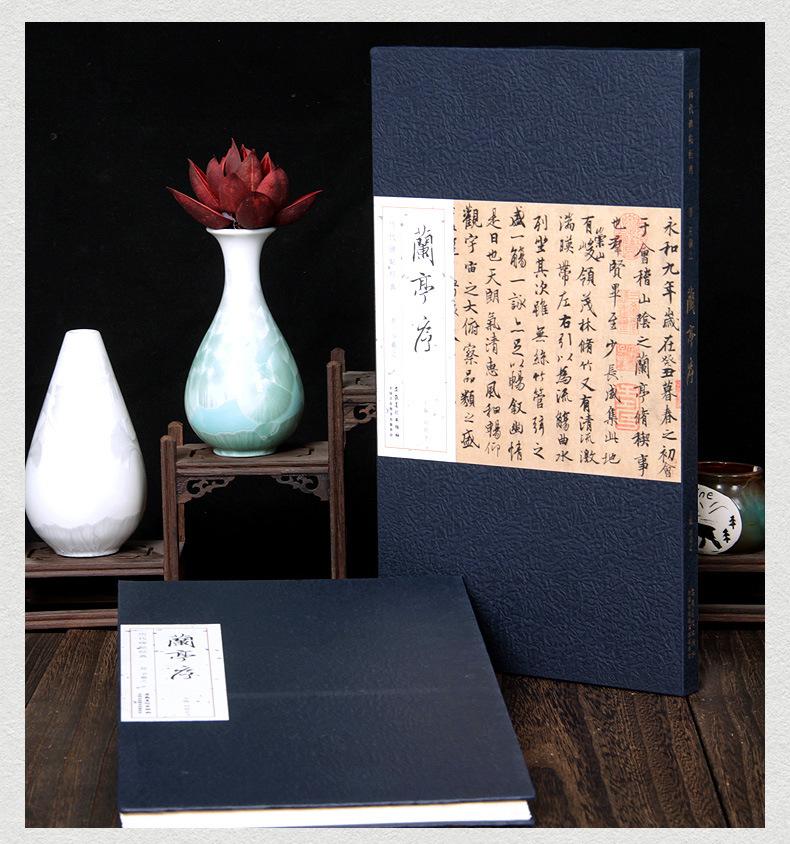 蘭亭序
永和九年歲在癸丑暮春之初會
于會稽山陰之蘭亭脩稧事
也羣賢畢至少長咸集此地
有崇山峻領茂林脩竹又有清流激
湍暎帶左右引以為流觴曲水
列坐其次雖無絲竹管弦之
盛一觴一詠亦足以暢敘幽情
是日也天朗氣清惠風和暢仰
觀宇宙之大俯察品類之盛
蘭亭序
蘭亭序